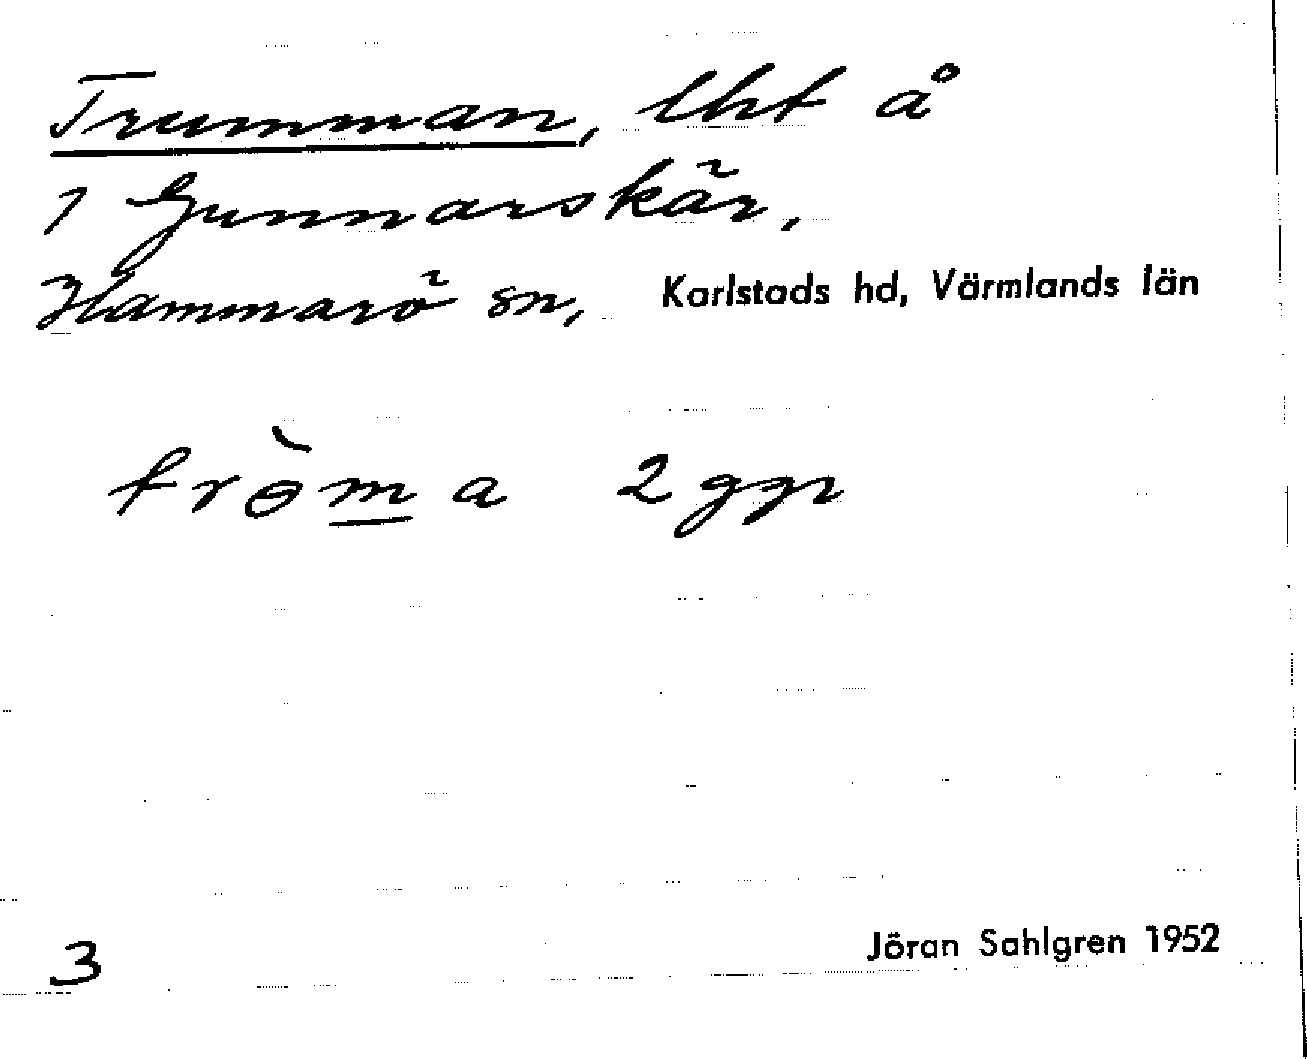 Trumman, lht å
1 Gunnarskär,
Hammarö sn, Karlstads hd, Värmlands län
trɵ̀m̲a 2 ggr
3
Jöran Sahlgren 1952